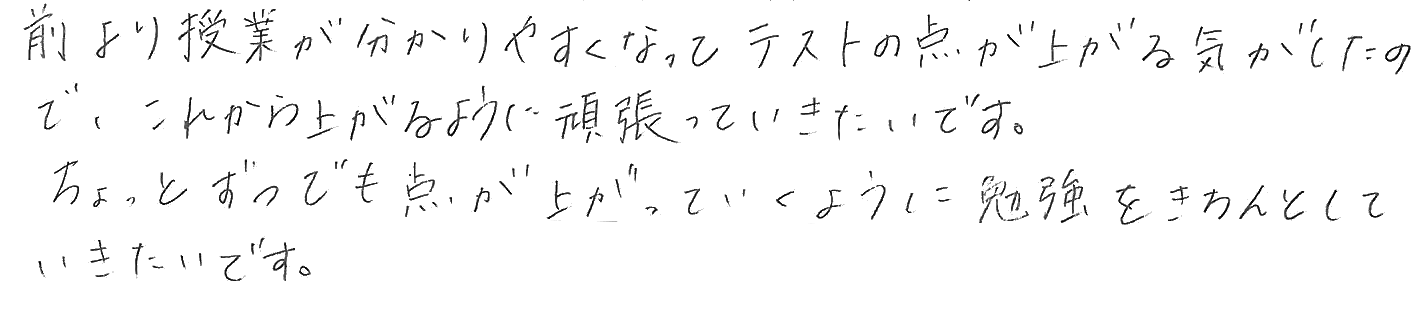 前より授業が分かりやすくなってテストの点が上がる気がしたの
で、これから上がるように頑張っていきたいです。
ちょっとずつでも点が上がっていくように勉強をきちんとして
いきたいです。